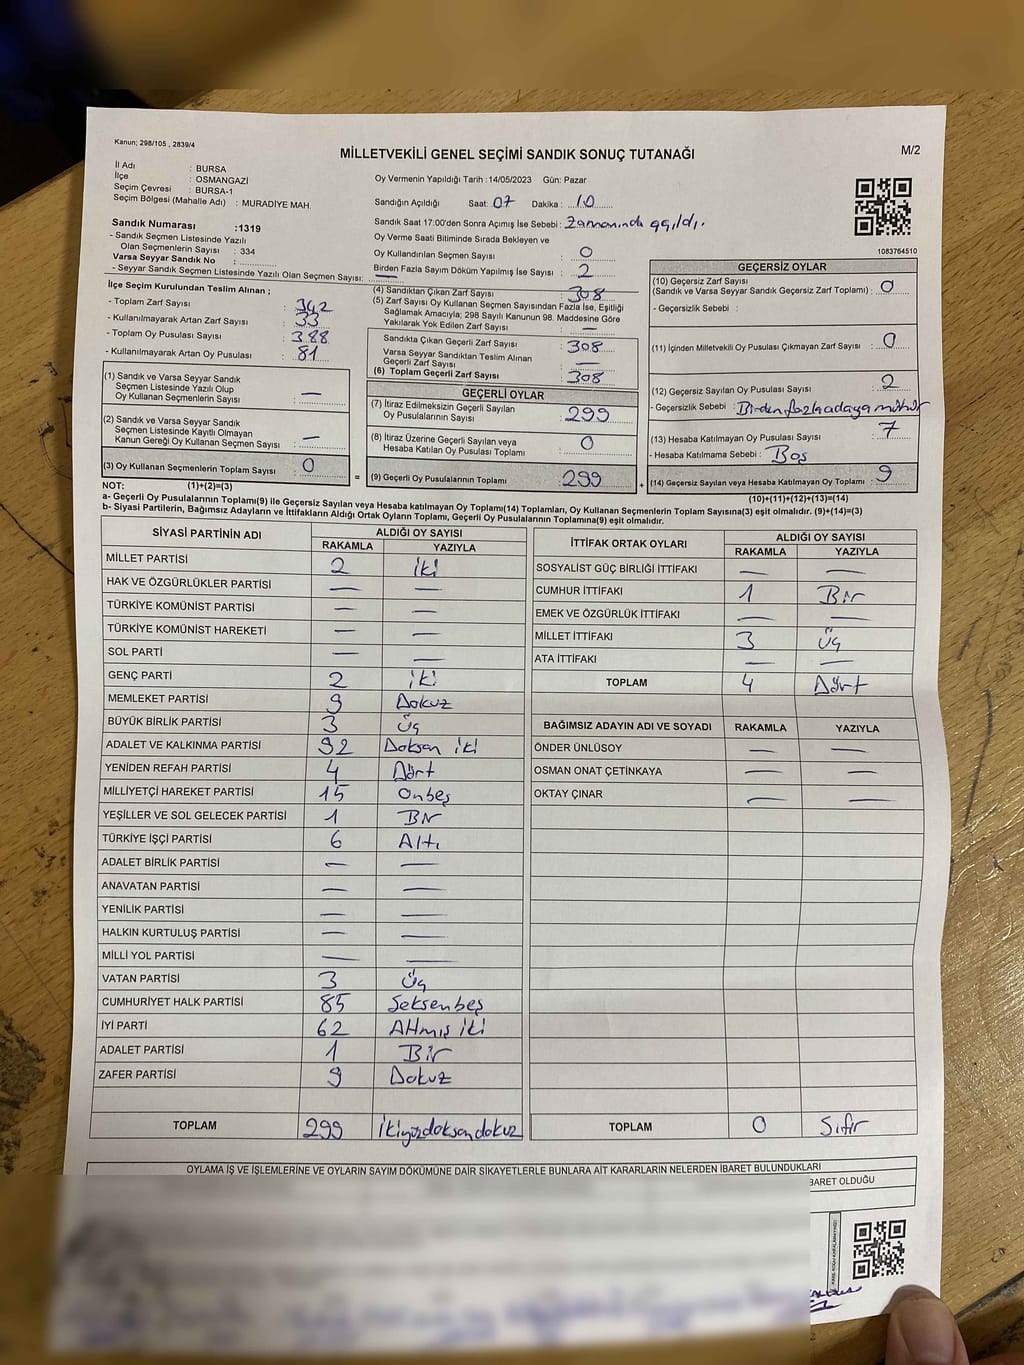 Kanun; 298/105 , 2839/4
MİLLETVEKİLİ GENEL SEÇİMİ SANDIK SONUÇ TUTANAĞI
M/2
İl Adı : BURSA
İlçe : OSMANGAZİ
Seçim Çevresi : BURSA-1
Seçim Bölgesi (Mahalle Adı) : MURADİYE MAH.
Oy Vermenin Yapıldığı Tarih :14/05/2023 Gün: Pazar
Sandığın Açıldığı Saat: 07 Dakika : 10
Sandık Saat 17:00'den Sonra Açımış İse Sebebi : Zamanında açıldı.
Sandık Numarası :1319
- Sandık Seçmen Listesinde Yazılı
Olan Seçmenlerin Sayısı : 334
Varsa Seyyar Sandık No :
- Seyyar Sandık Listesinde Yazılı Olan Seçmen Sayısı: —
Oy Verme Saati Bitiminde Sırada Bekleyen ve
Oy Kullandırılan Seçmen Sayısı : 0
Birden Fazla Sayım Döküm Yapılmış İse Sayısı : 2
1083764510
İlçe Seçim Kurulundan Teslim Alınan ;
- Toplam Zarf Sayısı : 342
- Kullanılmayarak Artan Zarf Sayısı : 33
- Toplam Oy Pusulası Sayısı : 388
- Kullanılmayarak Artan Oy Pusulası : 81
(4) Sandıktan Çıkan Zarf Sayısı : 308
(5) Zarf Sayısı Oy Kullanan Seçmen Sayısından Fazla İse, Eşitliği
Sağlamak Amacıyla; 298 Sayılı Kanunun 98. Maddesine Göre
Yakılarak Yok Edilen Zarf Sayısı : —
Sandıkta Çıkan Geçerli Zarf Sayısı : 308
Varsa Seyyar Sandıktan Teslim Alınan
Geçerli Zarf Sayısı : —
(6) Toplam Geçerli Zarf Sayısı : 308
(1) Sandık ve Varsa Seyyar Sandık
Seçmen Listesinde Yazılı Olup
Oy Kullanan Seçmenlerin Sayısı : —
(2) Sandık ve Varsa Seyyar Sandık
Seçmen Listesinde Kayıtlı Olmayan
Kanun Gereği Oy Kullanan Seçmen Sayısı : —
(3) Oy Kullanan Seçmenlerin Toplam Sayısı : 0
GEÇERLİ OYLAR
(7) İtiraz Edilmeksizin Geçerli Sayılan
Oy Pusulalarının Sayısı : 299
(8) İtiraz Üzerine Geçerli Sayılan veya
Hesaba Katılan Oy Pusulası Toplamı : 0
= (9) Geçerli Oy Pusulalarının Toplamı : 299 +
GEÇERSİZ OYLAR
(10) Geçersiz Zarf Sayısı
(Sandık ve Varsa Seyyar Sandık Geçersiz Zarf Toplamı) : 0
- Geçersizlik Sebebi :
(11) İçinden Milletvekili Oy Pusulası Çıkmayan Zarf Sayısı : 0
(12) Geçersiz Sayılan Oy Pusulası Sayısı : 2
- Geçersizlik Sebebi : Birden fazla adaya mühür
(13) Hesaba Katılmayan Oy Pusulası Sayısı : 7
- Hesaba Katılmama Sebebi : Boş
(14) Geçersiz Sayılan veya Hesaba Katılmayan Oy Toplamı : 9
NOT: (1)+(2)=(3) (10)+(11)+(12)+(13)=(14)
a- Geçerli Oy Pusulalarının Toplamı(9) ile Geçersiz Sayılan veya Hesaba katılmayan Oy Toplamı(14) Toplamları, Oy Kullanan Seçmenlerin Toplam Sayısına(3) eşit olmalıdır. (9)+(14)=(3)
b- Siyasi Partilerin, Bağımsız Adayların ve İttifakların Aldığı Oyların Toplamı, Geçerli Oy Pusulalarının Toplamına(9) eşit olmalıdır.
SİYASİ PARTİNİN ADI ALDIĞI OY SAYISI
RAKAMLA YAZIYLA
MİLLET PARTİSİ 2 iki
HAK VE ÖZGÜRLÜKLER PARTİSİ — —
TÜRKİYE KOMÜNİST PARTİSİ — —
TÜRKİYE KOMÜNİST HAREKETİ — —
SOL PARTİ — —
GENÇ PARTİ 2 iki
MEMLEKET PARTİSİ 9 Dokuz
BÜYÜK BİRLİK PARTİSİ 3 Üç
ADALET VE KALKINMA PARTİSİ 92 Doksan iki
YENİDEN REFAH PARTİSİ 4 Dört
MİLLİYETÇİ HAREKET PARTİSİ 15 Onbeş
YEŞİLLER VE SOL GELECEK PARTİSİ 1 Bir
TÜRKİYE İŞÇİ PARTİSİ 6 Altı
ADALET BİRLİK PARTİSİ — —
ANAVATAN PARTİSİ — —
YENİLİK PARTİSİ — —
HALKIN KURTULUŞ PARTİSİ — —
MİLLİ YOL PARTİSİ — —
VATAN PARTİSİ 3 Üç
CUMHURİYET HALK PARTİSİ 85 Seksenbeş
İYİ PARTİ 62 Altmış iki
ADALET PARTİSİ 1 Bir
ZAFER PARTİSİ 9 Dokuz
TOPLAM 299 ikiyüzdoksandokuz
İTTİFAK ORTAK OYLARI ALDIĞI OY SAYISI
RAKAMLA YAZIYLA
SOSYALİST GÜÇ BİRLİĞİ İTTİFAKI — —
CUMHUR İTTİFAKI 1 Bir
EMEK VE ÖZGÜRLÜK İTTİFAKI — —
MİLLET İTTİFAKI 3 Üç
ATA İTTİFAKI — —
TOPLAM 4 Dört
BAĞIMSIZ ADAYIN ADI VE SOYADI RAKAMLA YAZIYLA
ÖNDER ÜNLÜSOY — —
OSMAN ONAT ÇETİNKAYA — —
OKTAY ÇINAR — —
TOPLAM 0 Sıfır
OYLAMA İŞ VE İŞLEMLERİNE VE OYLARIN SAYIM DÖKÜMÜNE DAİR ŞİKAYETLERLE BUNLARA AİT KARARLARIN NELERDEN İBARET BULUNDUKLARI
BARET OLDUĞU